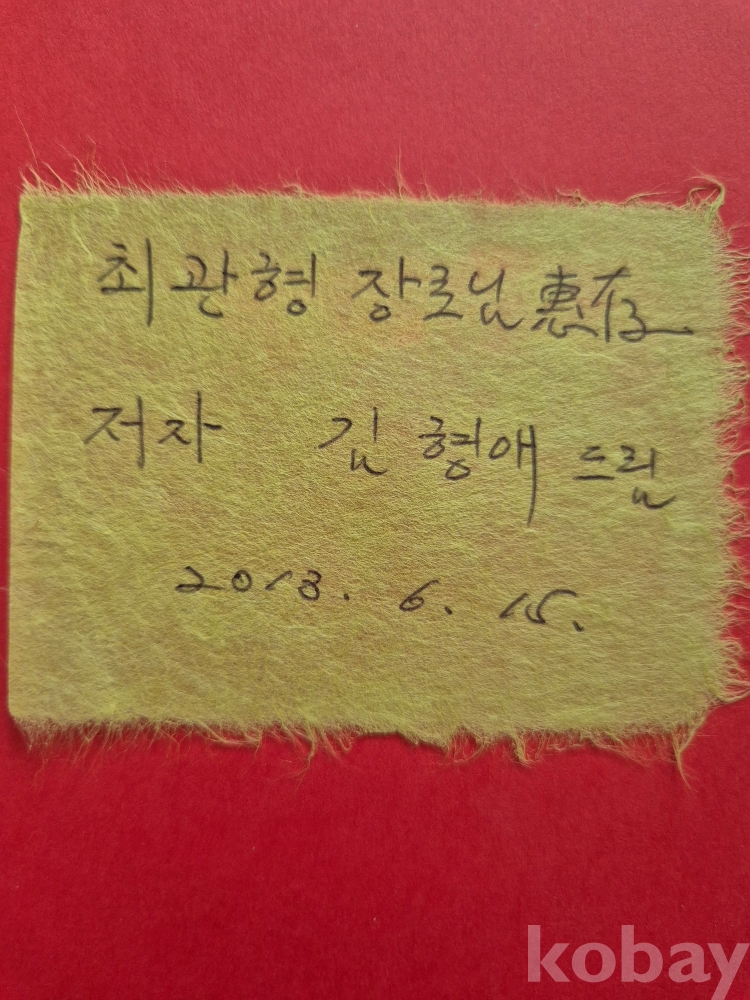 최관형 장로님 惠存
저자 김형애 드림
2013. 6. 15.
kobay